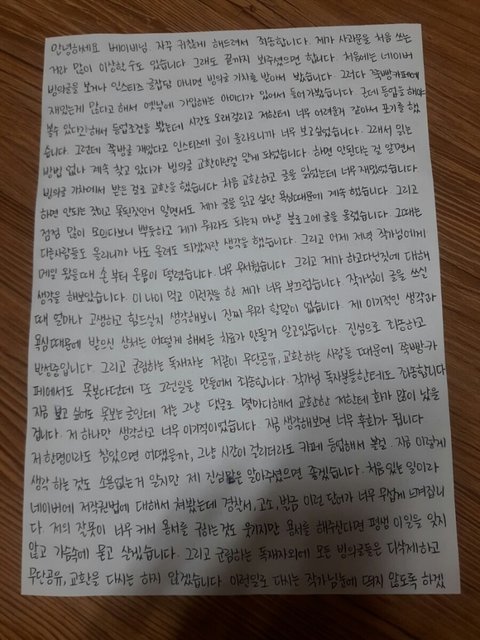 안녕하세요 베이비님. 자꾸 귀찮게 해드려서 죄송합니다. 제가 사과문을 처음 쓰는
거라 많이 이상할 수도 있습니다. 그래도 끝까지 봐주셨으면 합니다. 처음에는 네이버
빙의글을 보거나 인스티즈 글잡담 아니면 빙의글 기차를 받아서 봤습니다. 그러다 쭉빵카페에
재밌는게 많다고 해서 옛날에 가입해둔 아이디가 있어서 들어가봤습니다. 근데 등업을 해야
볼수 있다고해서 등업조건을 봤는데 시간도 오래걸리고 저한테 너무 어려울거 같아서 포기를 했
습니다. 그런데 쭉빵글 재밌다고 인스티에 글이 올라오니까 너무 보고싶었습니다. 그래서 읽는
방법 없나 계속 찾고 있다가 빙의글 교환이란걸 알게 되었습니다. 하면 안된다는 걸 알면서
빙의글 기차에서 받은 걸로 교환을 했습니다. 처음 교환하고 글을 읽었는데 너무 재밌었습니다.
하면 안되는 것이고 잘못된것인거 알면서도 제가 글을 읽고 싶단 욕심때문에 계속 했습니다. 그리고
점점 많이 모으다보니 뿌듯하고 제가 뭐라도 되는지 마냥 블로그에 글을 올렸습니다. 그때는
다른사람들도 올리니까 나도 올려도 되겠지란 생각을 했습니다. 그리고 어제 저녁 작가님에게
메일 왔을때 손 부터 온몸이 떨렸습니다. 너무 무서웠습니다. 그리고 제가 하고다닌짓에 대해
생각을 해보았습니다. 이 나이 먹고 이런짓을 한 제가 너무 부끄럽습니다. 작가님이 글을 쓰실
때 얼마나 고생하고 힘드실지 생각해보니 진짜 뭐라 할말이 없습니다. 제 이기적인 생각과
욕심 때문에 받으신 상처는 어떻게 해서든 치료가 안될거 알고있습니다. 진심으로 죄송하고
반성중입니다. 그리고 군림하는 독재자는 저같이 무단공유, 교환 하는 사람들 때문에 쭉빵카
페에서도 못본다던데 또 그런일을 만들어서 죄송합니다. 작가님 독자분들한테도 죄송합니다.
지금 보고 싶어도 못보는 글인데 저는 그냥 댓글로 몇마디해서 교환한 저한테 화가 많이 났을
겁니다. 저 하나만 생각하고 너무 이기적이었습니다. 지금 생각해보면 너무 후회가 됩니다.
저 한명이라도 참았으면 어땠을까, 그냥 시간이 걸리더라도 카페 등업해서 볼걸. 지금 이렇게
생각 하는 것도 소용없는거 알지만 제 진심만은 알아주셨으면 좋겠습니다. 처음 있는 일이라
네이버에 저작권법에 대해서 쳐봤는데 경찰서, 고소, 벌금 이런 단어가 너무 무섭게 느껴집니
다. 저의 잘못이 너무 커서 용서를 구하는것도 웃기지만 용서를 해주신다면 평생 이 일을 잊지
않고 가슴속에 묻고 살겠습니다. 그리고 군림하는 독재자외에 모든 빙의글들은 다삭제하고
무단공유, 교환을 다시는 하지 않겠습니다. 이런일로 다시는 작가님눈에 띄지 않도록 하겠